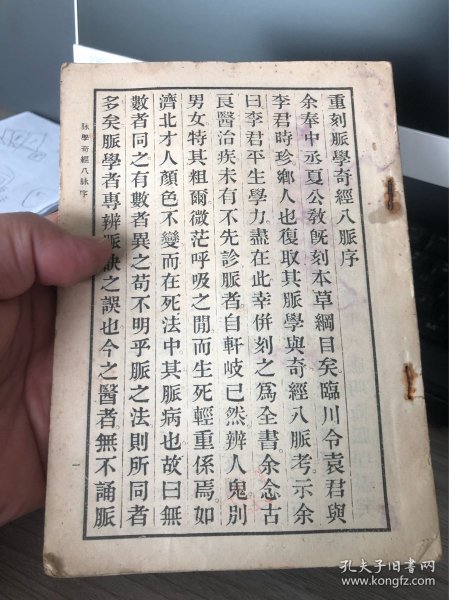 重刻脈學奇經八脈序
余奉中丞夏公敎旣刻本草綱目矣臨川令袁君與
李君時珍鄕人也復取其脈學與奇經八脈考示余
曰李君平生學力盡在此幸併刻之爲全書余念古
良醫治疾未有不先診脈者自軒岐已然辨人鬼別
男女特其粗爾微茫呼吸之閒而生死輕重係焉如
濟北才人顏色不變而在死法中其脈病也故曰無
數者同之有數者異之苟不明乎脈之法則所同者
多矣脈學者專辨脈訣之誤也今之醫者無不誦脈
脉學奇經八脉序
孔夫子旧书网
www.kongfz.com